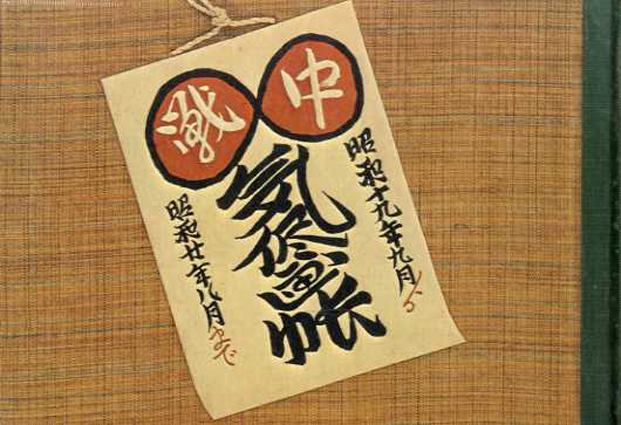 戦中
気侭画帳
昭和十九年九月より
昭和廿年八月まで